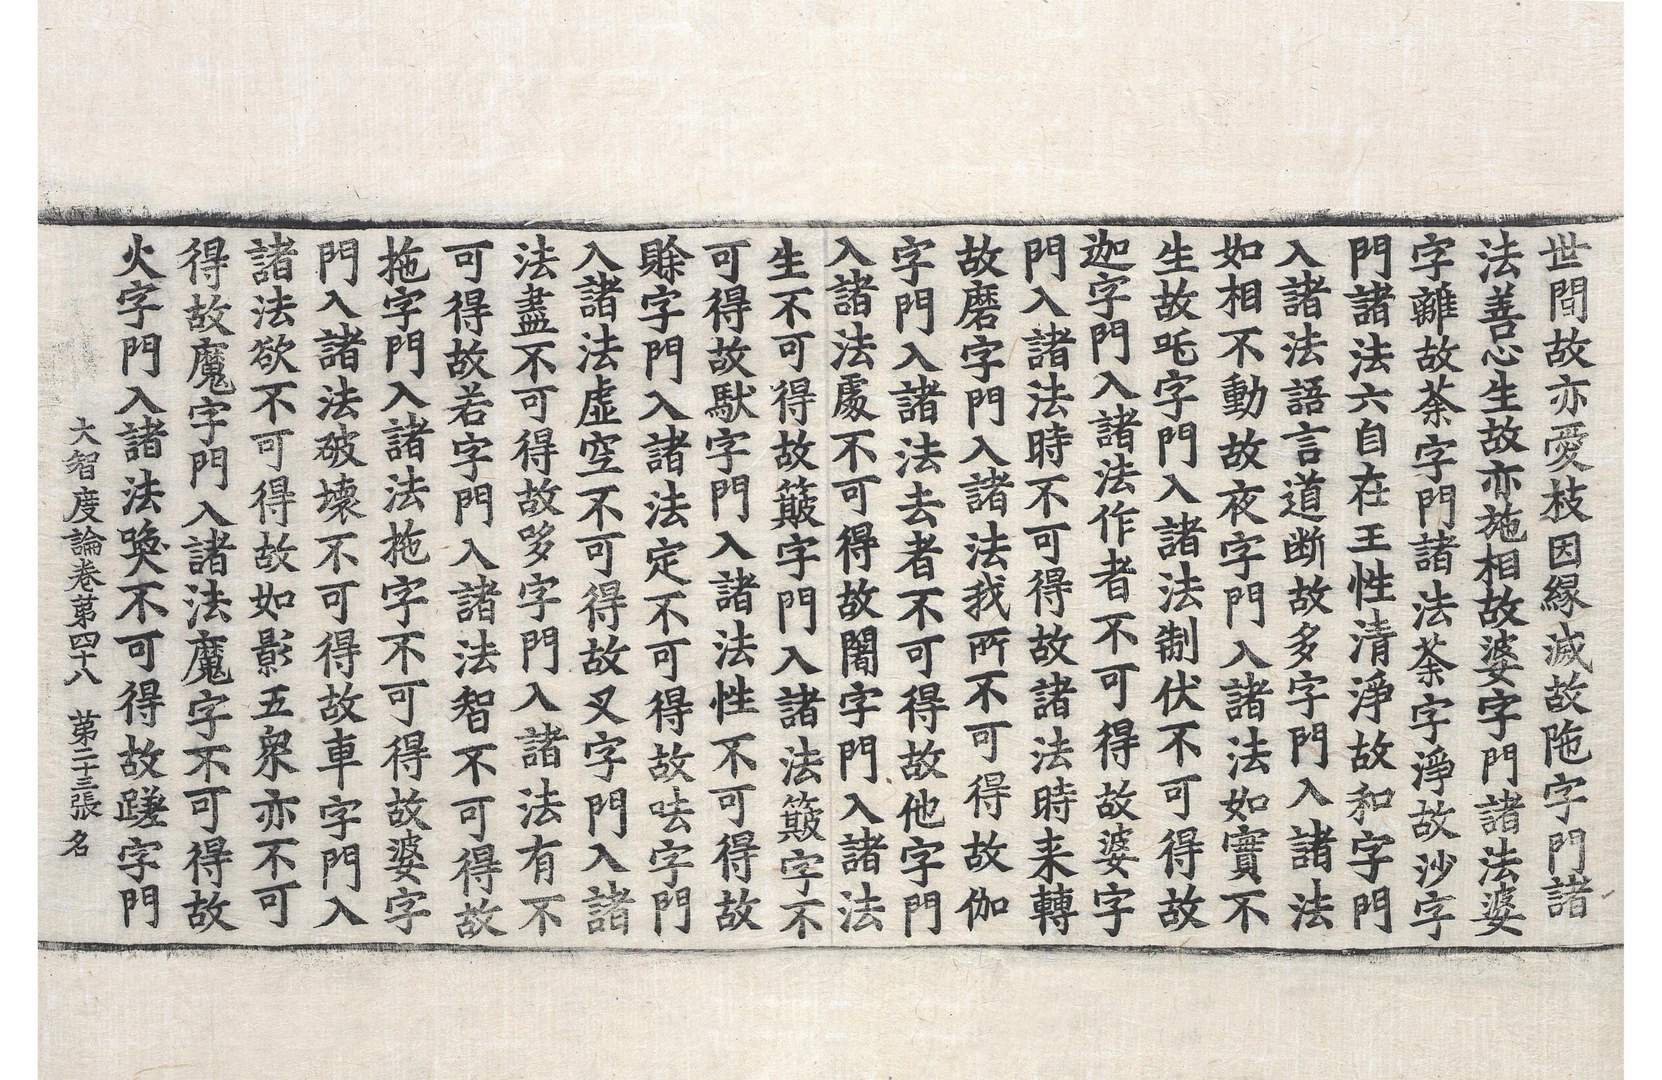 世間故亦愛枝因緣滅故陁字門諸
法善心生故亦施相故婆字門諸法婆
字離故荼字門諸法荼字淨故沙字
門諸法六自在王性清淨故和字門
入諸法語言道断故多字門入諸法
如相不動故夜字門入諸法如實不
生故吒字門入諸法制伏不可得故
迦字門入諸法作者不可得故婆字
門入諸法時不可得故諸法時来轉
故磨字門入諸法我所不可得故伽
字門入諸法去者不可得故他字門
入諸法處不可得故闍字門入諸法
生不可得故簸字門入諸法簸字不
可得故馱字門入諸法性不可得故
賒字門入諸法定不可得故呿字門
入諸法虛空不可得故叉字門入諸
法盡不可得故哆字門入諸法有不
可得故若字門入諸法智不可得故
拖字門入諸法拖字不可得故婆字
門入諸法破壞不可得故車字門入
諸法欲不可得故如影五衆亦不可
得故魔字門入諸法魔字不可得故
火字門入諸法喚不可得故蹉字門
大智度論卷第四十八 第二十三張 名